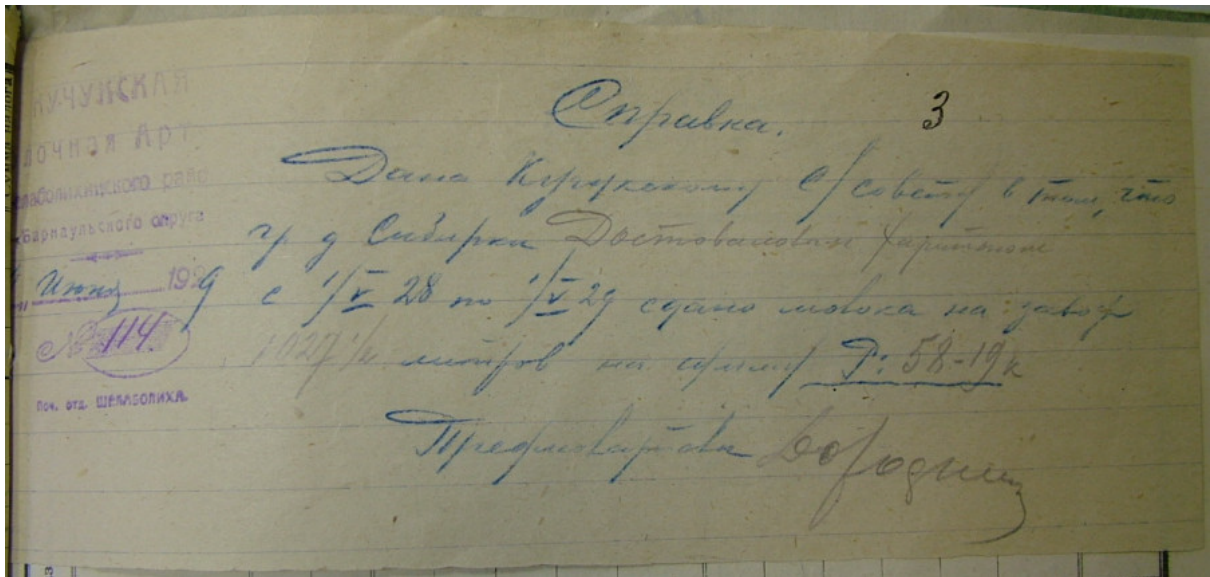 КУЧУКСКАЯ
лочная Арт
лаболихинского райо
Барнаульского округа
" Июня 1929
№ 114
Поч. отд. ШЕЛАБОЛИХА.
3
Справка.
Дана Кучукскому с/совету в том, что
гр д Сибирки Достоваловым Харитоном
с 1/V 28 по 1/V 29 сдано молока на завод
1027 литров на сумму Р: 58-19к
Предмолартели Бородин